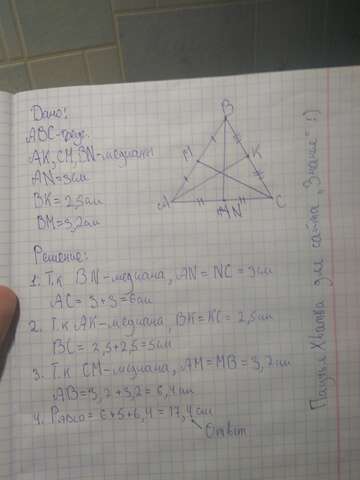 Дано:
ABC-треуг.
AK, CM, BN-медианы
AN=3см
BK=2,5см
BM=3,2см
B
M
K
A
N
C
Решение:
1. Т.к BN-медиана, AN=NC=3см
AC=3+3=6см
2. Т.к AK-медиана, BK=KC=2,5см
BC=2,5+2,5=5см
3. Т.к CM-медиана, AM=MB=3,2см
AB=3,2+3,2=6,4см
4. P =6+5+6,4=17,4см
Ответ
для сайта „Знание" :)